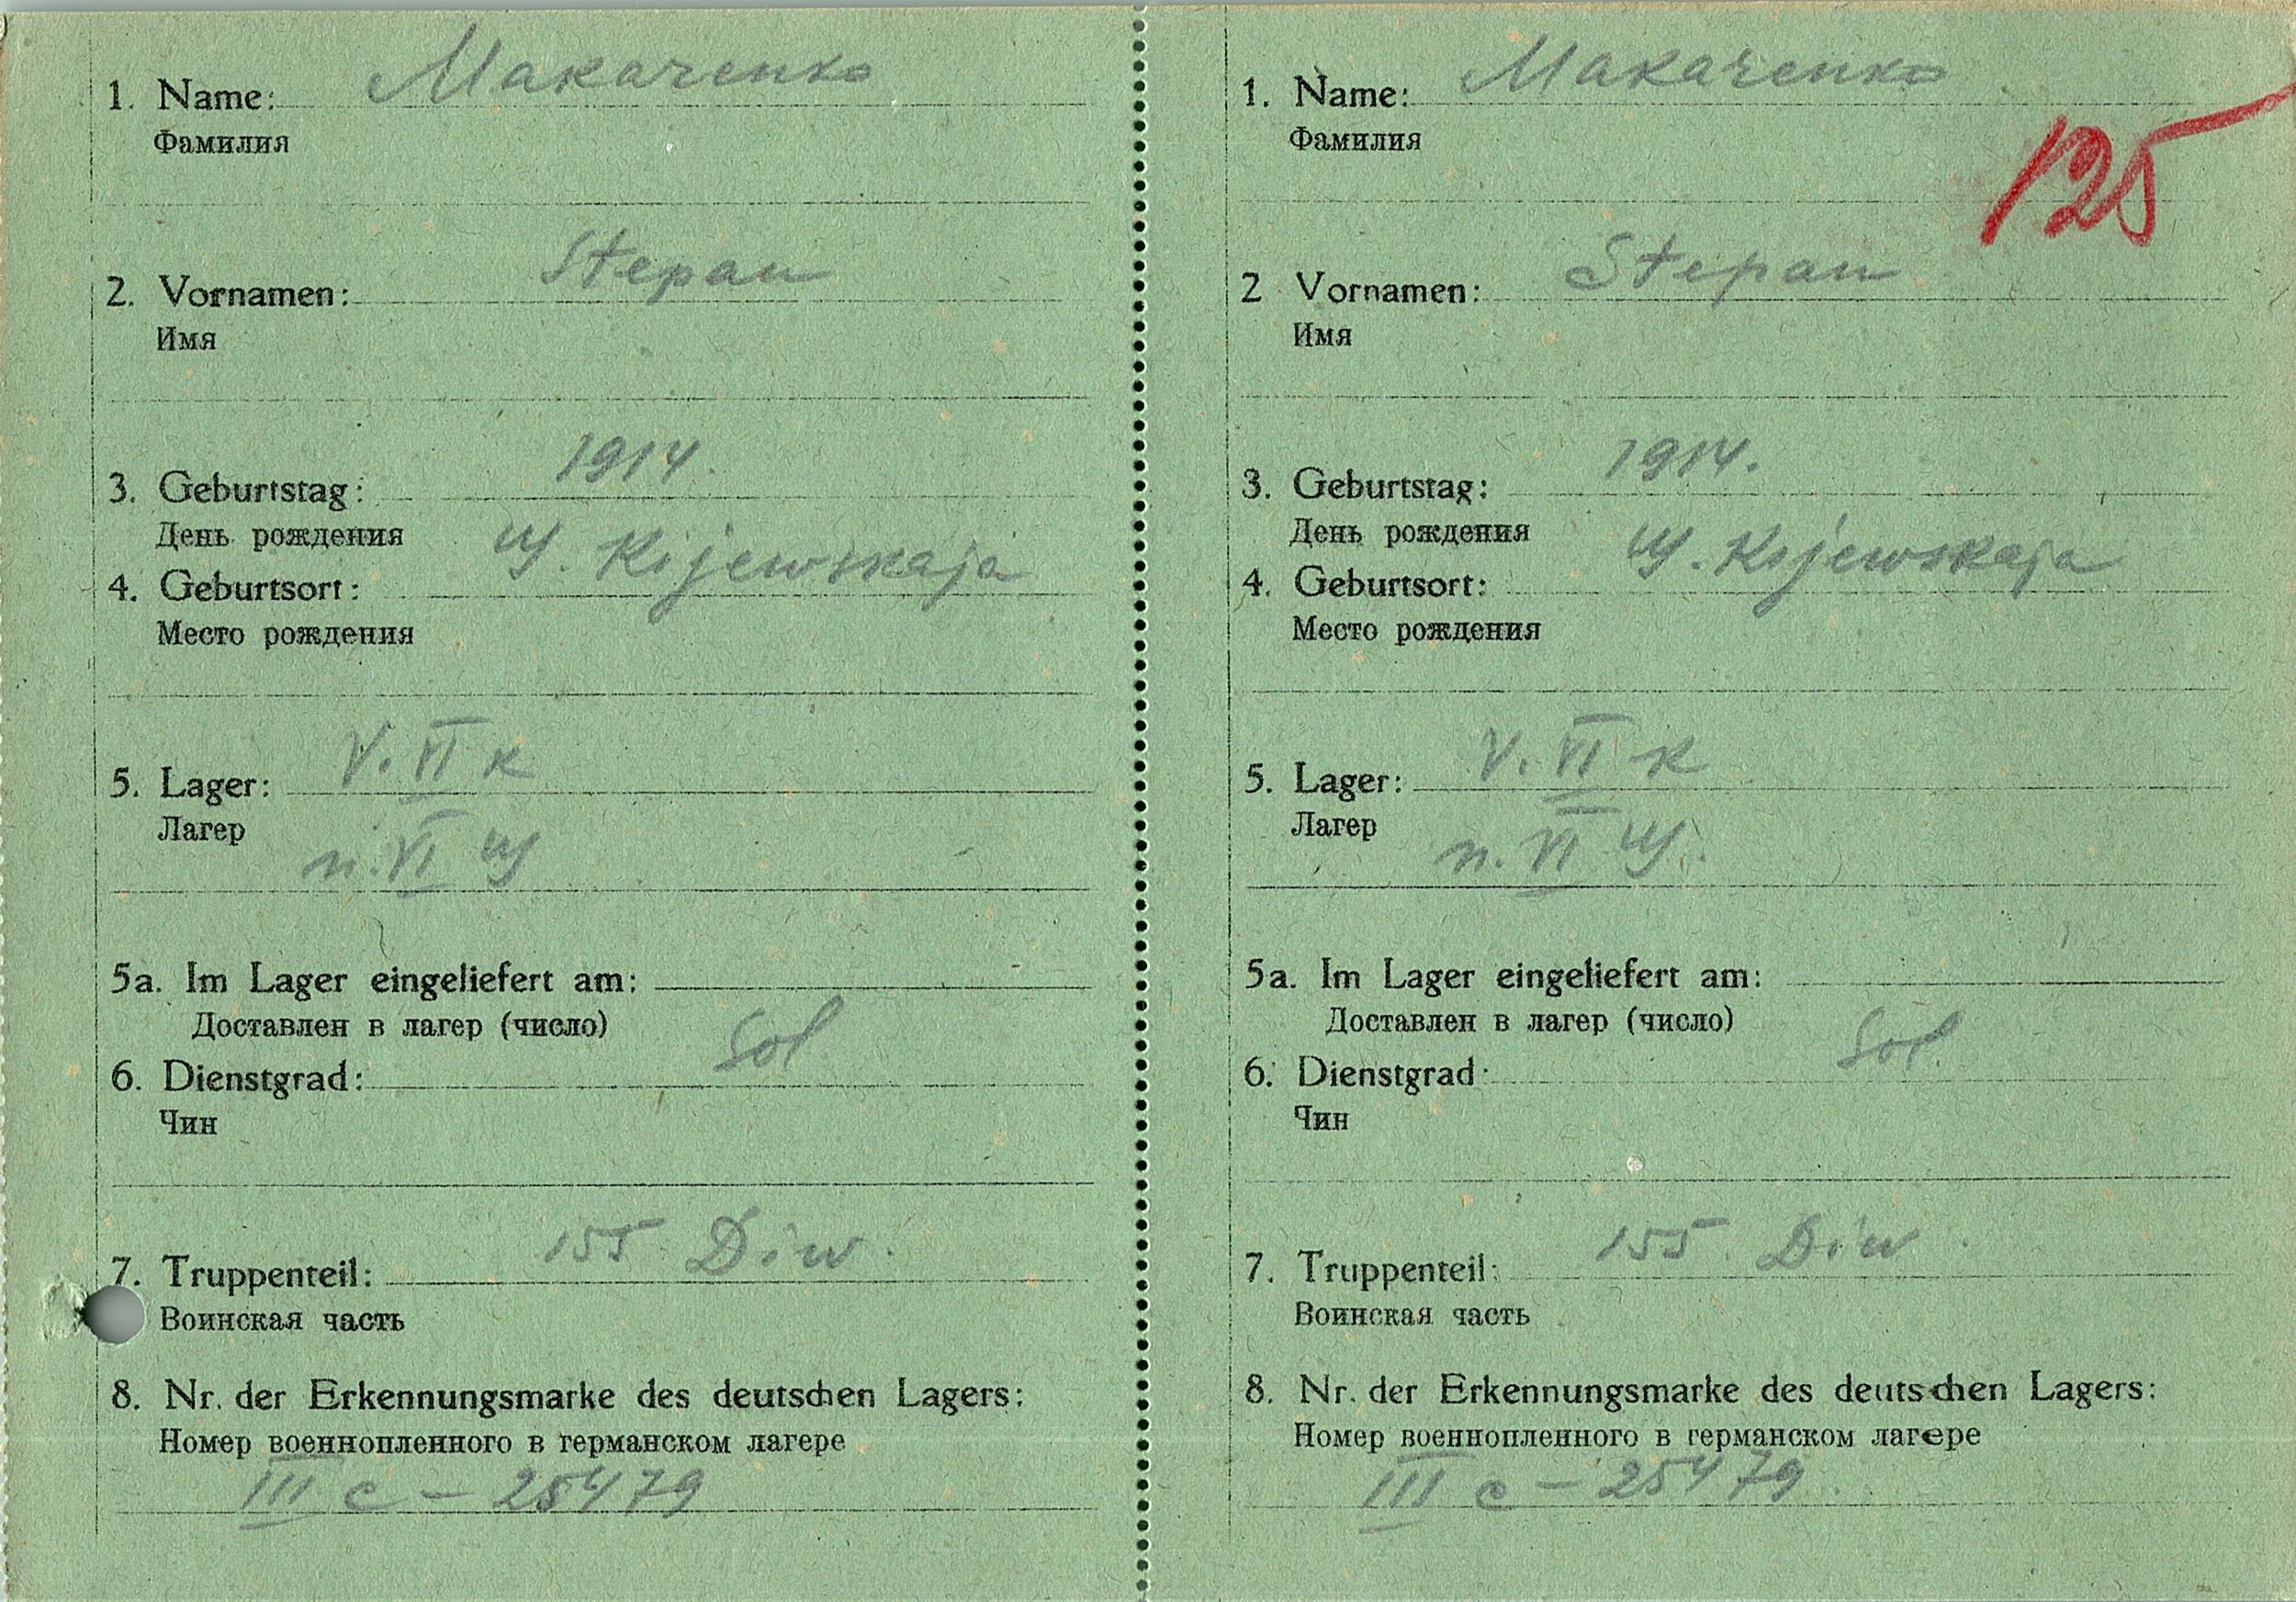 1. Name: Makarenko
Фамилия
2. Vornamen: Stepan
Имя
3. Geburtstag: 1914.
День рождения
4. Geburtsort: Kijewskaja
Место рождения
5. Lager: V. VI K
Лагер
n. VI
5a. Im Lager eingeliefert am:
Доставлен в лагер (число)
6. Dienstgrad: Sol
Чин
7. Truppenteil: 155 Diw.
Воинская часть
8. Nr. der Erkennungsmarke des deutschen Lagers:
Номер военнопленного в германском лагере
III c – 25479
1. Name: Makarenko
Фамилия
125
2 Vornamen: Stepan
Имя
3. Geburtstag: 1914.
День рождения
4. Geburtsort: Kijewskaja
Место рождения
5. Lager: V. VI K
Лагер
n. VI
5a. Im Lager eingeliefert am:
Доставлен в лагер (число)
6. Dienstgrad: Sol.
Чин
7. Truppenteil: 155. Diw.
Воинская часть
8. Nr. der Erkennungsmarke des deutschen Lagers:
Номер военнопленного в германском лагере
III c – 25479